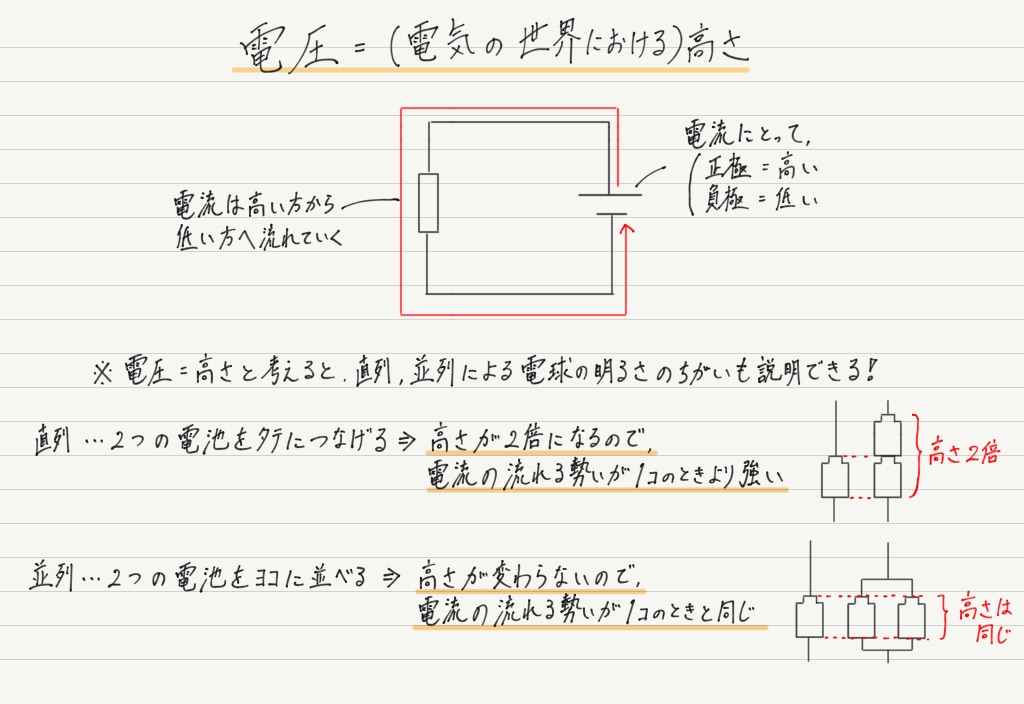 電圧=(電気の世界における)高さ
電流にとって,
正極=高い
負極=低い
電流は高い方から
低い方へ流れていく
※電圧=高さと考えると、直列,並列による電球の明るさのちがいも説明できる!
直列…2つの電池をタテにつなげる⇒高さが2倍になるので,
電流の流れる勢いが1コのときより強い
高さ2倍
並列…2つの電池をヨコに並べる⇒高さが変わらないので,
電流の流れる勢いが1コのときと同じ
高さは
同じ